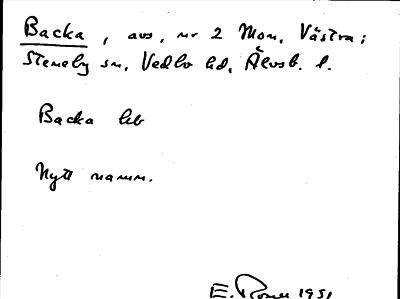 Backa, avs. nr 2 Mon, Västra;
Steneby sn, Vedbo hd, Älvsb. l.
Backa lht
Nytt namn.
E. Rosell 1951